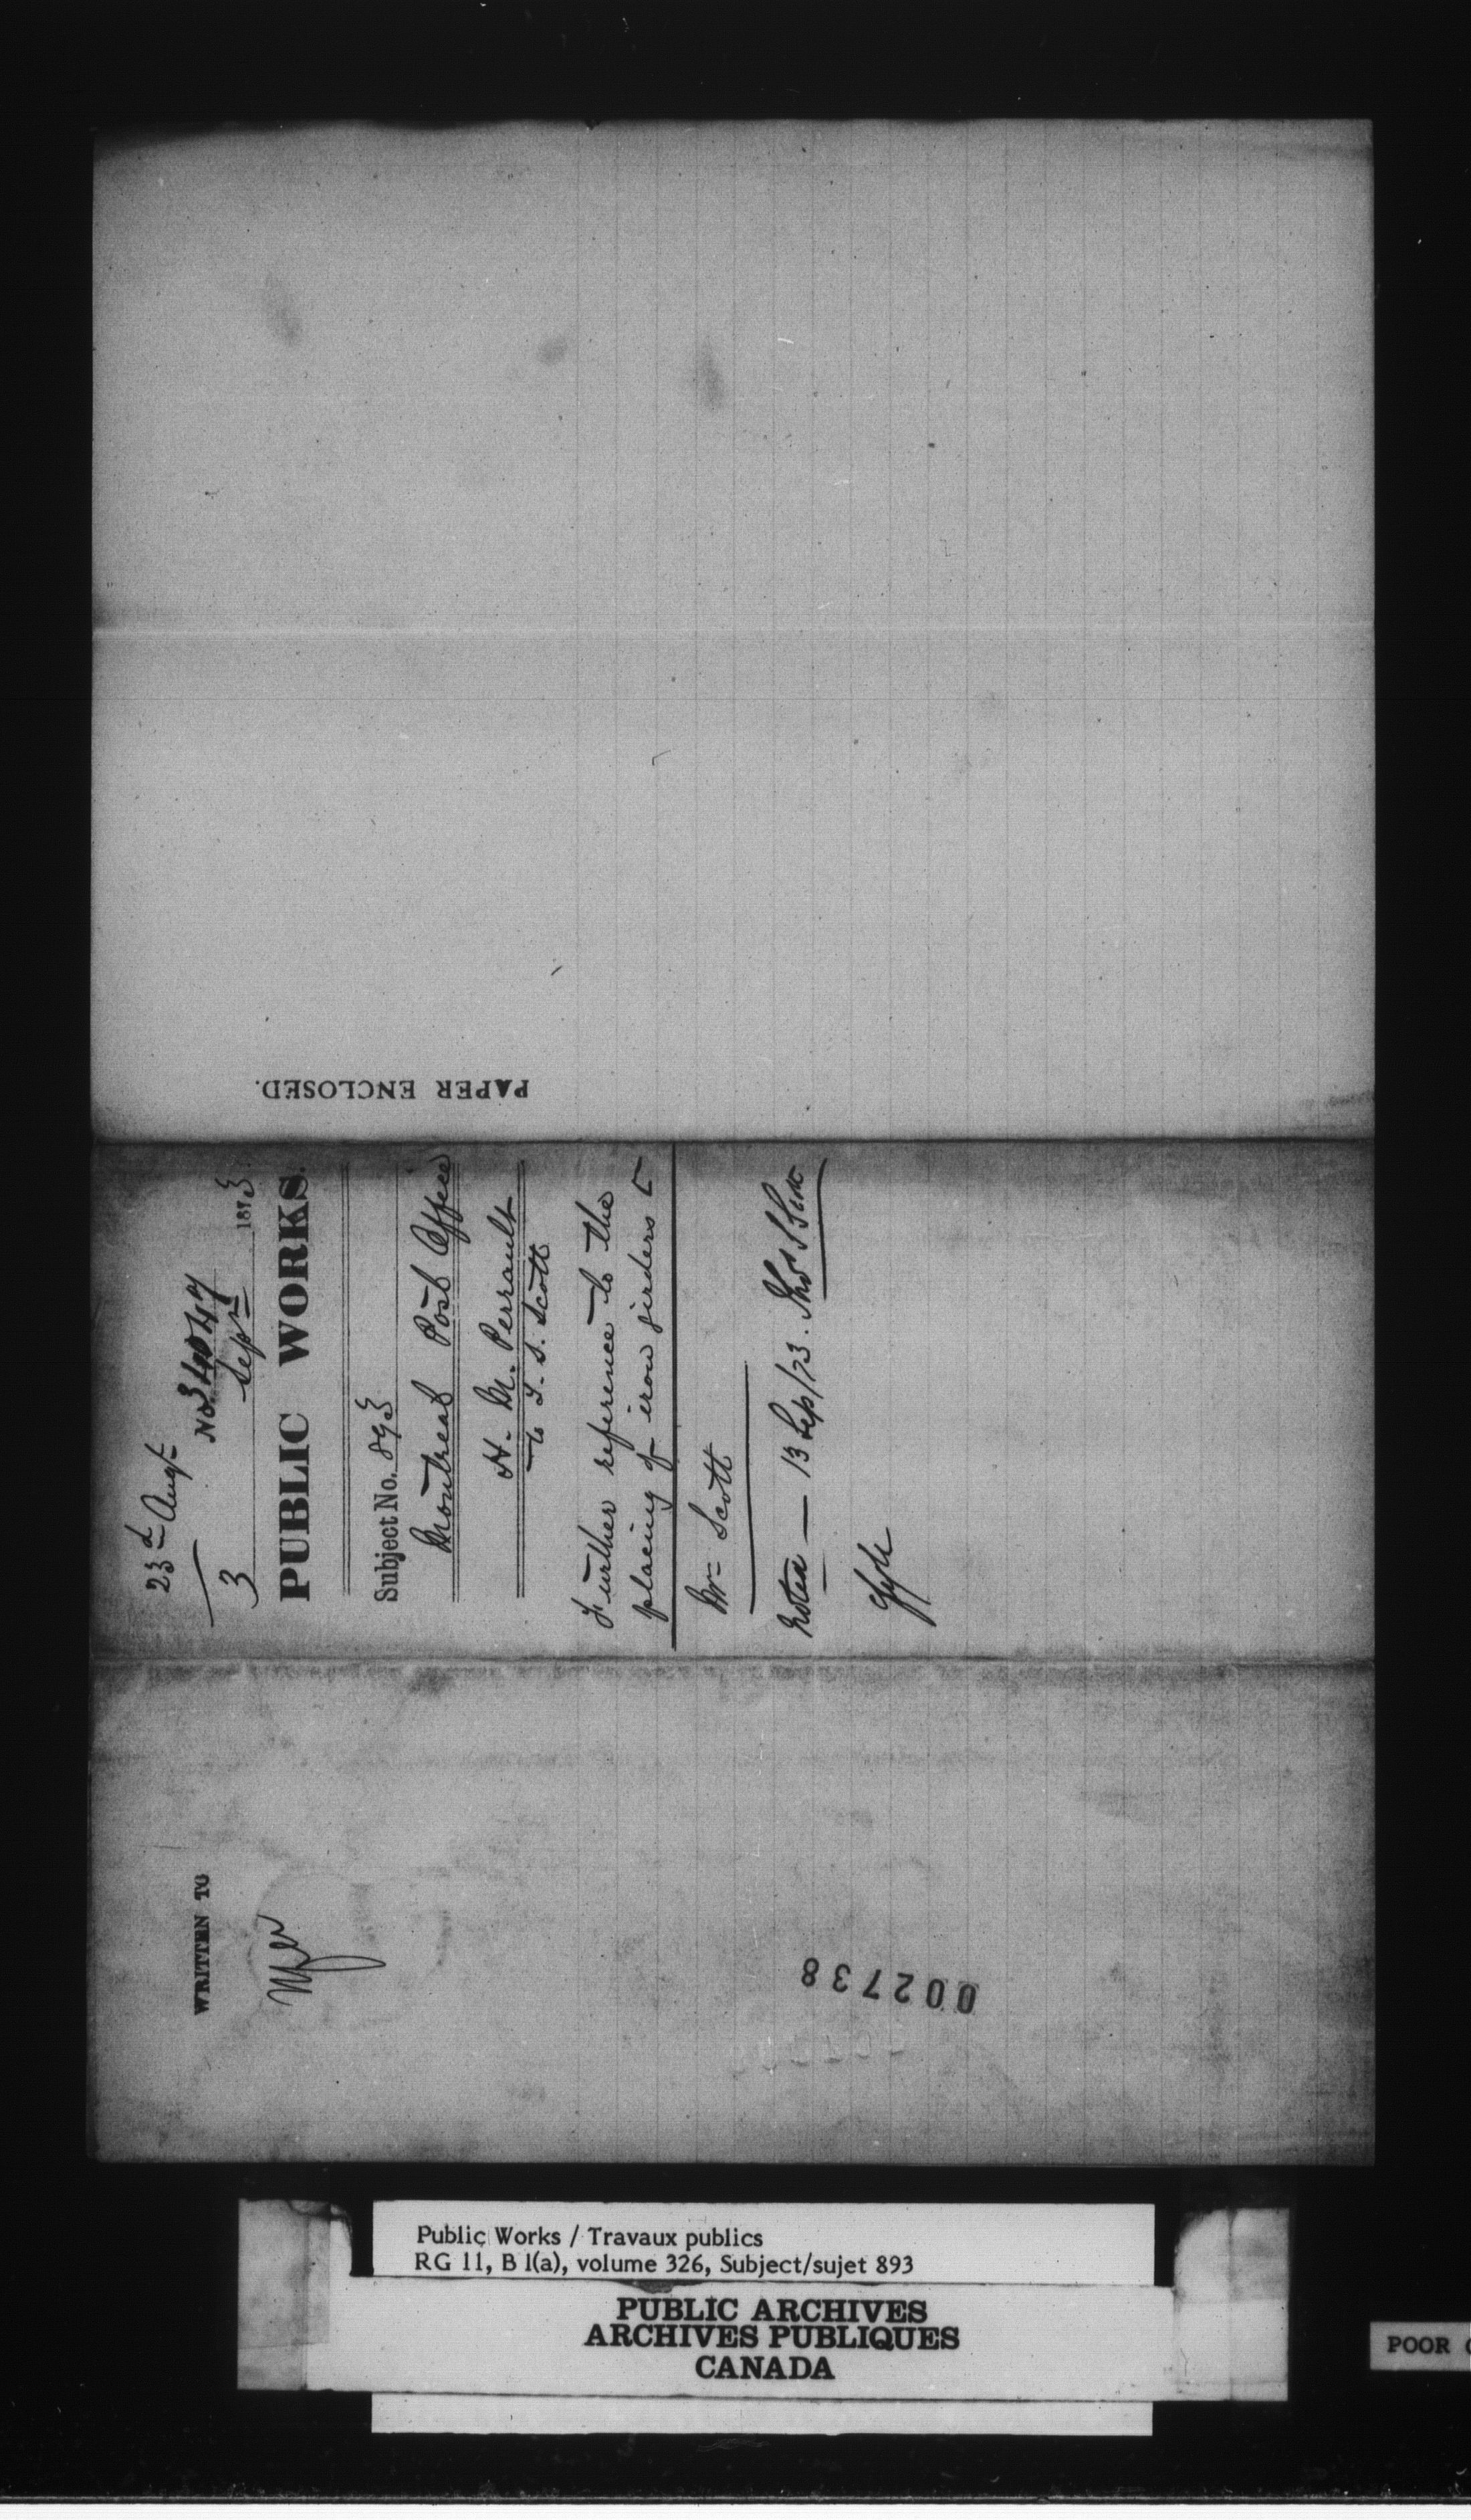 PAPER ENCLOSED.
23d Augt
No. 34047
3 Sepr 1873
PUBLIC WORKS.
Subject No. 893
Montreal Post Office
H. M. Perrault
to T. S. Scott
Further reference to the
placing of iron girders
Mr Scott
Noted — 13 Sep/73. Thos S Scott
WRITTEN TO
002738
Public Works / Travaux publics
RG 11, B 1(a), volume 326, Subject/sujet 893
PUBLIC ARCHIVES
ARCHIVES PUBLIQUES
CANADA
POOR